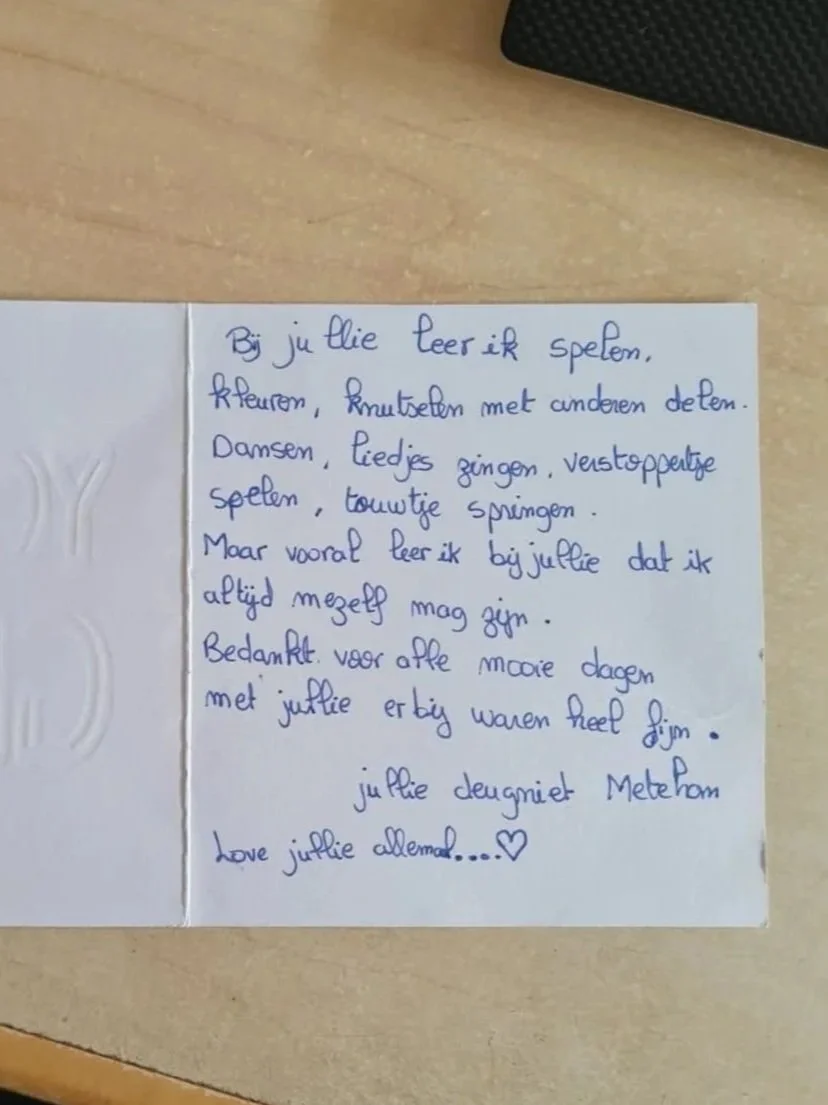 Bij jullie leer ik spelen,
kleuren, knutselen met anderen delen.
Dansen, liedjes zingen, verstoppertje
spelen, touwtje springen.
Maar vooral leer ik bij jullie dat ik
altijd mezelf mag zijn.
Bedankt voor alle mooie dagen
met jullie erbij waren heel fijn.
jullie deugniet Metehan
Love jullie allemal....♡